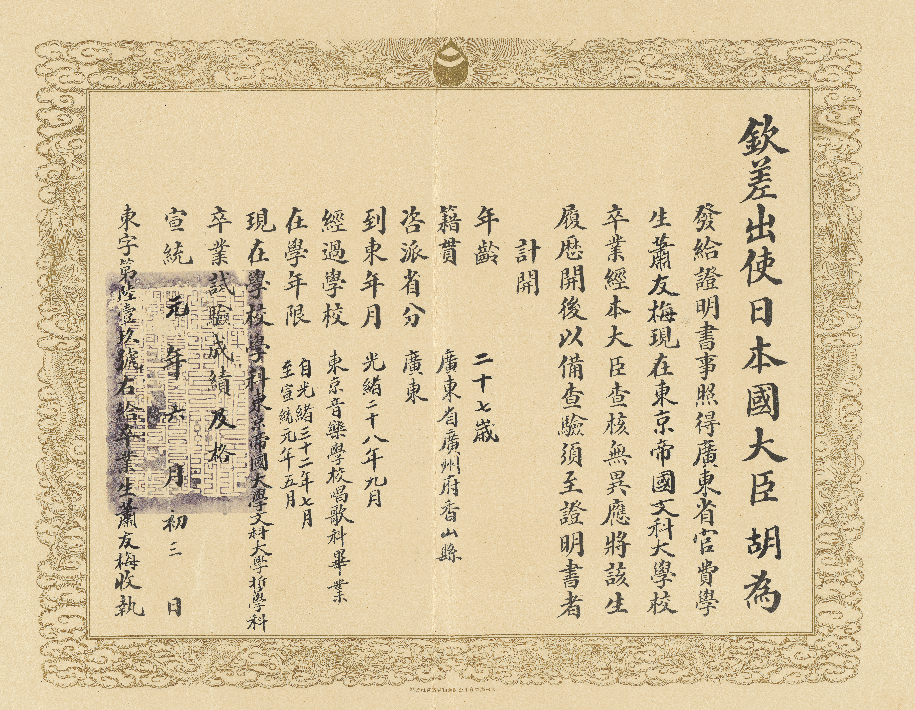 欽差出使日本國大臣 胡 為
發給證明書事照得廣東省官費學
生蕭友梅現在東京帝國文科大學校
卒業經本大臣查核無異應將該生
履歷開後以備查驗須至證明書者
計開
年齡 二十七歲
籍貫 廣東省廣州府香山縣
咨派省分 廣東
到東年月 光緒二十八年九月
經過學校 東京音樂學校唱歌科畢業
在學年限 自光緒三十二年七月
至宣統元年五月
現在學校學科東京帝國大學文科大學哲學科
卒業試驗成績及格
宣統元年六月初三日
東字第陸壹玖號右給卒業生蕭友梅收執